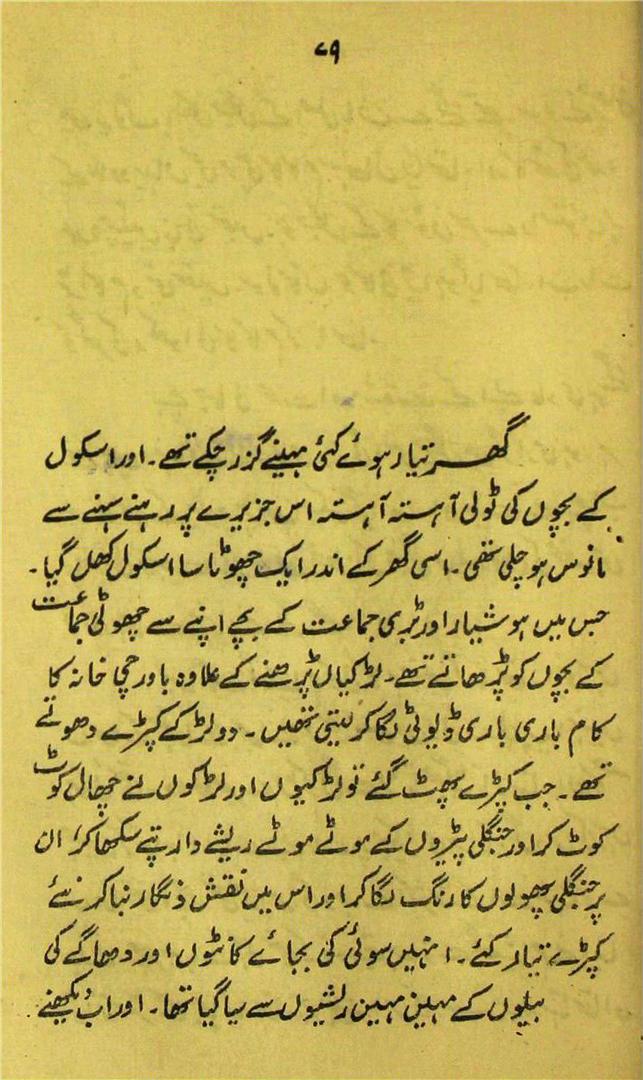 ۷۹
گھر تیار ہوئے کئی مہینے گزر چکے تھے۔ اور اسکول
کے بچوں کی ٹولی آہستہ آہستہ اس جزیرے پر رہنے سہنے سے
مانوس ہو چلی تھی۔ اسی گھر کے اندر ایک چھوٹا سا اسکول کھل گیا۔
جس میں ہوشیار اور بڑی جماعت کے بچے اپنے سے چھوٹی جماعت
کے بچوں کو پڑھاتے تھے۔ لڑکیاں پڑھنے کے علاوہ باورچی خانہ کا
کام باری باری ڈیوٹی لگا کر لیتی تھیں۔ دو لڑکے کپڑے دھوتے
تھے۔ جب کپڑے پھٹ گئے تو لڑکیوں اور لڑکوں نے چھال کوٹ
کوٹ کر اور جنگلی پیڑوں کے موٹے موٹے ریشے دار پتے سکھا کر ان
پر جنگلی پھولوں کا رنگ لگا کر اور اس میں نقش و نگار بنا کر نئے
کپڑے تیار کئے۔ انہیں سوئی کی بجائے کانٹوں اور دھاگے کی
بیلوں کے مہین مہین ریشوں سے سیا گیا تھا۔ اور اب دیکھنے